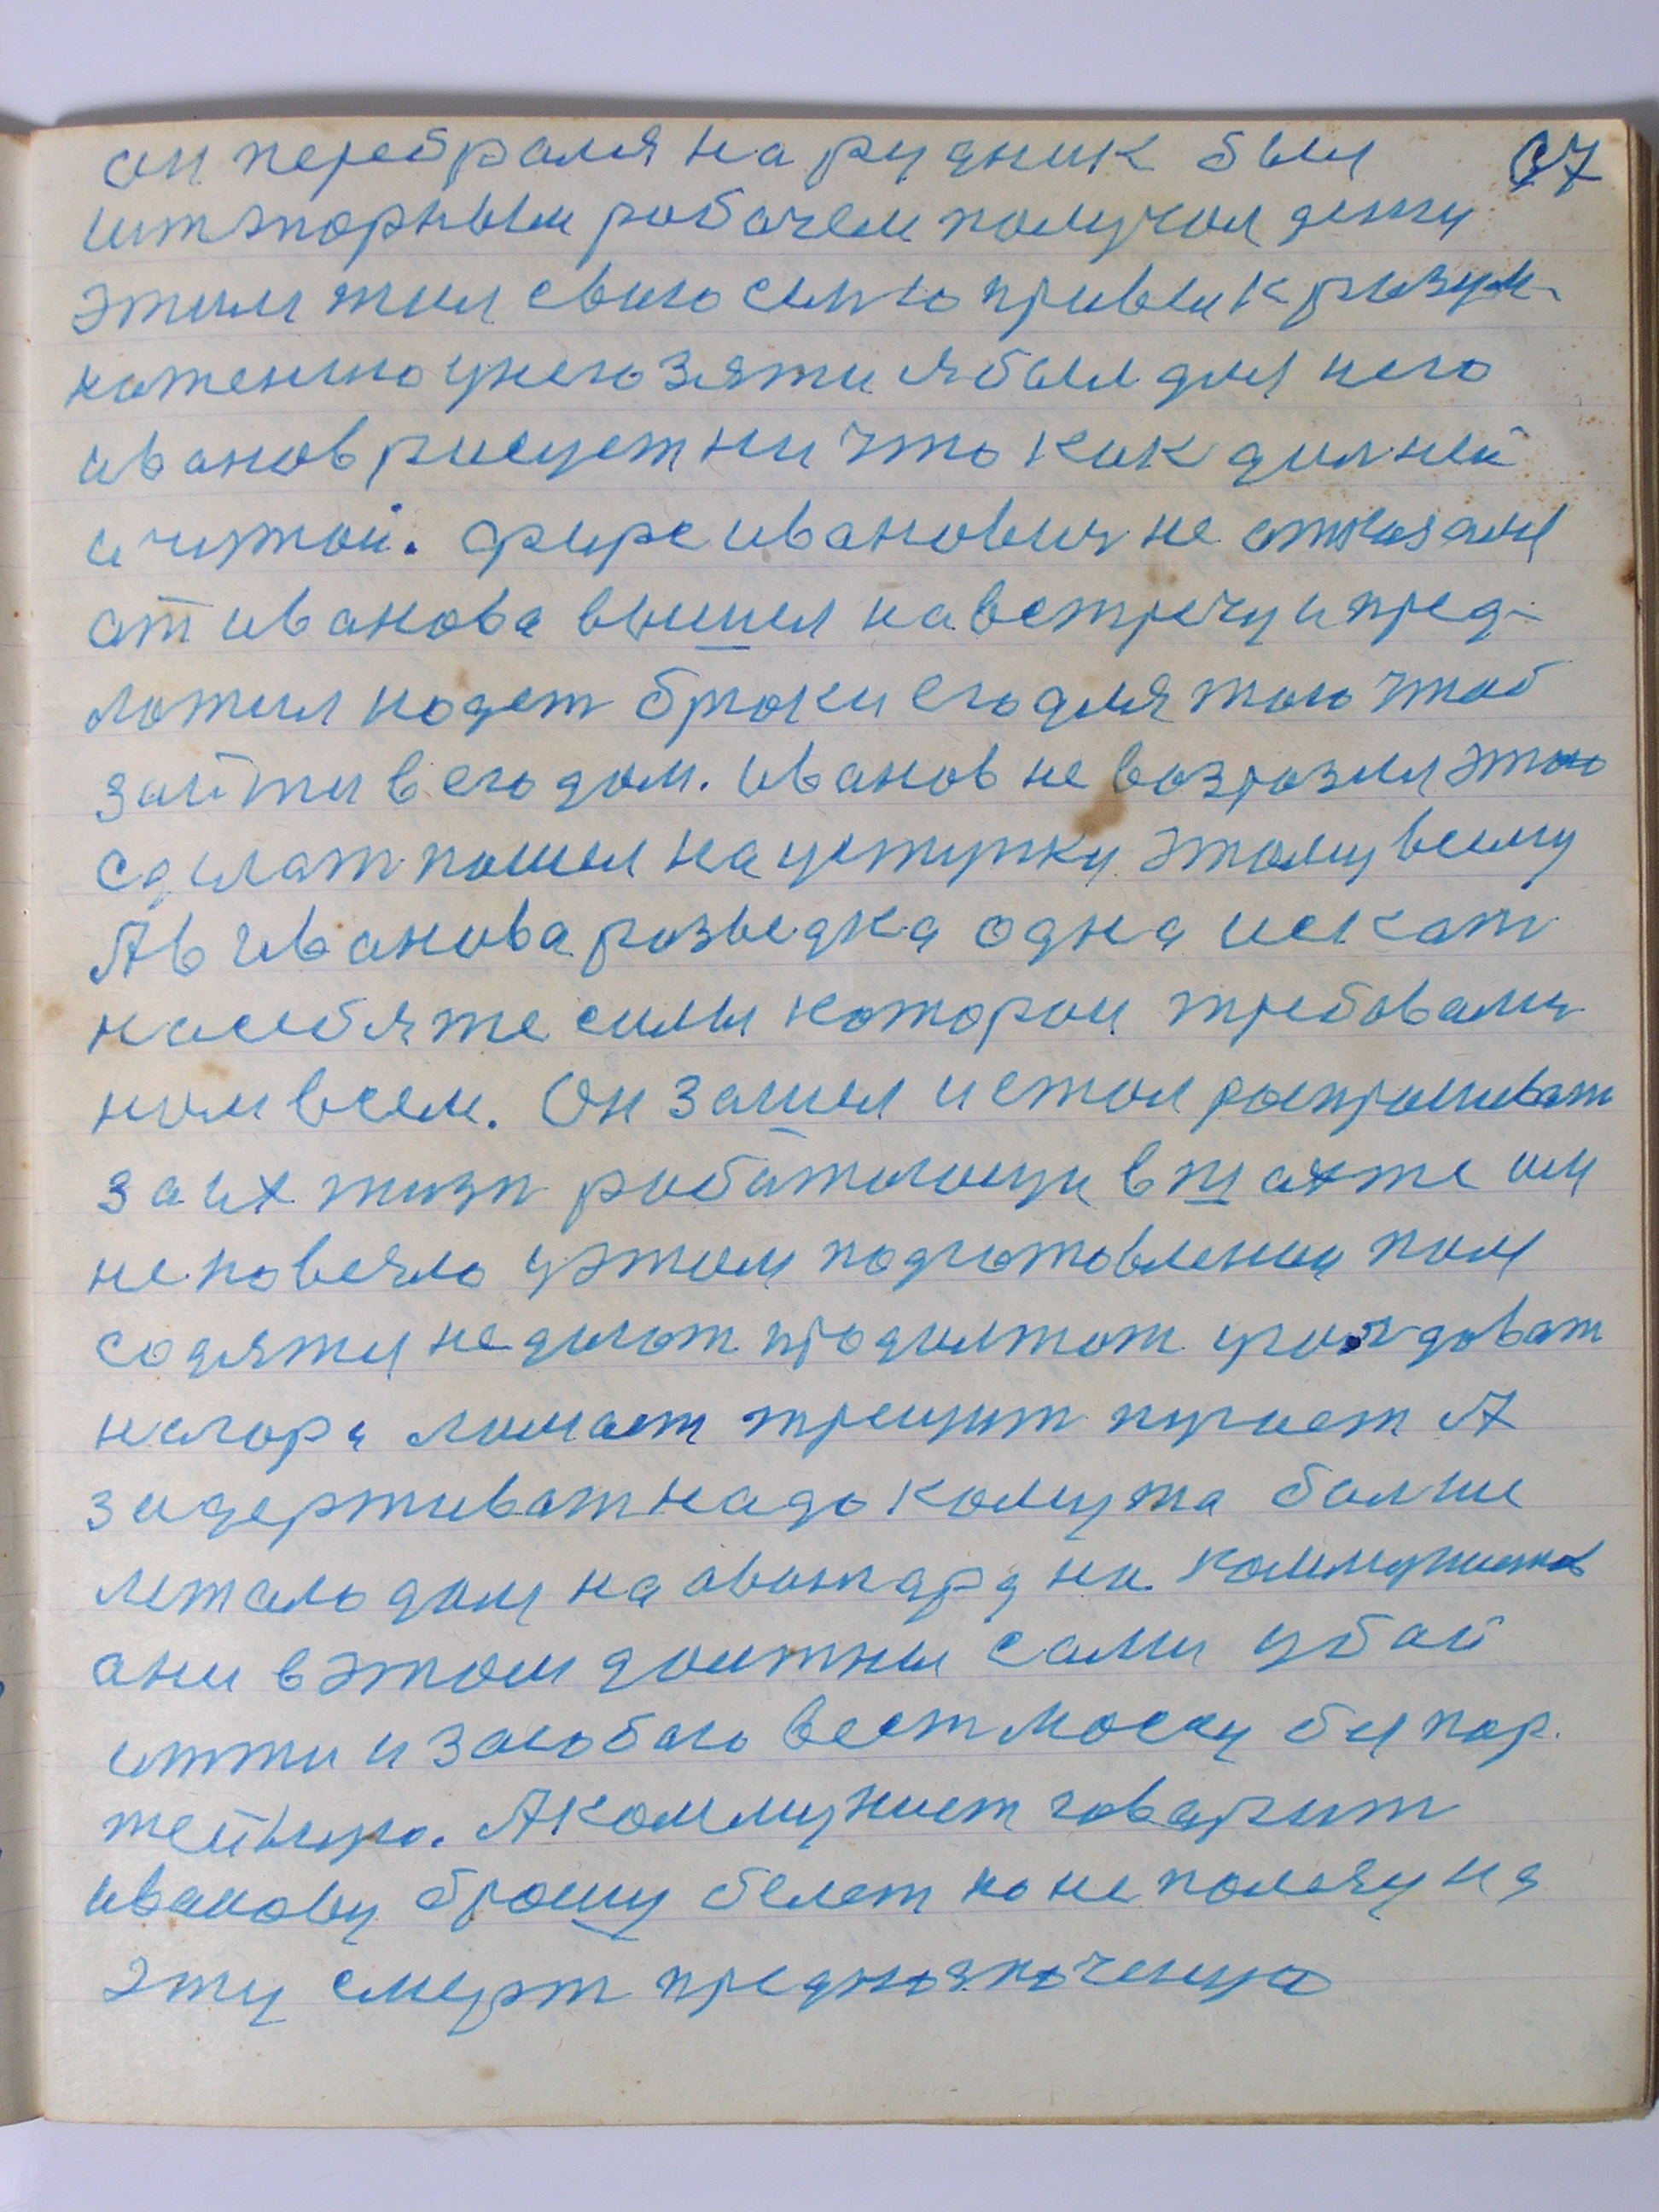 он перебрался на рудник был 67
штэпорным рабочем получал денги
этим жил свою семю привык розум-
ножению у него зяти я был для него
иванов рисует ни что как далней
и чужой. фире иванович не отказался
от иванова вышел на встречу и пред-
ложил надет брюки его для того чтоб
зайти в его дом. иванов не возрозил этого
сделат пошел на уступку этому всему
А в иванова розведка одна искат
на себя же силы которои требовалис
ном всем. Он зашел и стал роспрошиват
за их жизн роботяющи в шахте им
не повезло у этим подготовлении пом
содятся недилат продолжат угол доват
на гора ломает трещит пугает А
задерживат надо кому та болше
лежало для на авангард на коммунистов
они в этом должны сами убой
итти и за собою вест Массу бу пар.
тейную. А коммунист говарит
иванову брошу белет но не полезу на
эту смерт предназначеную